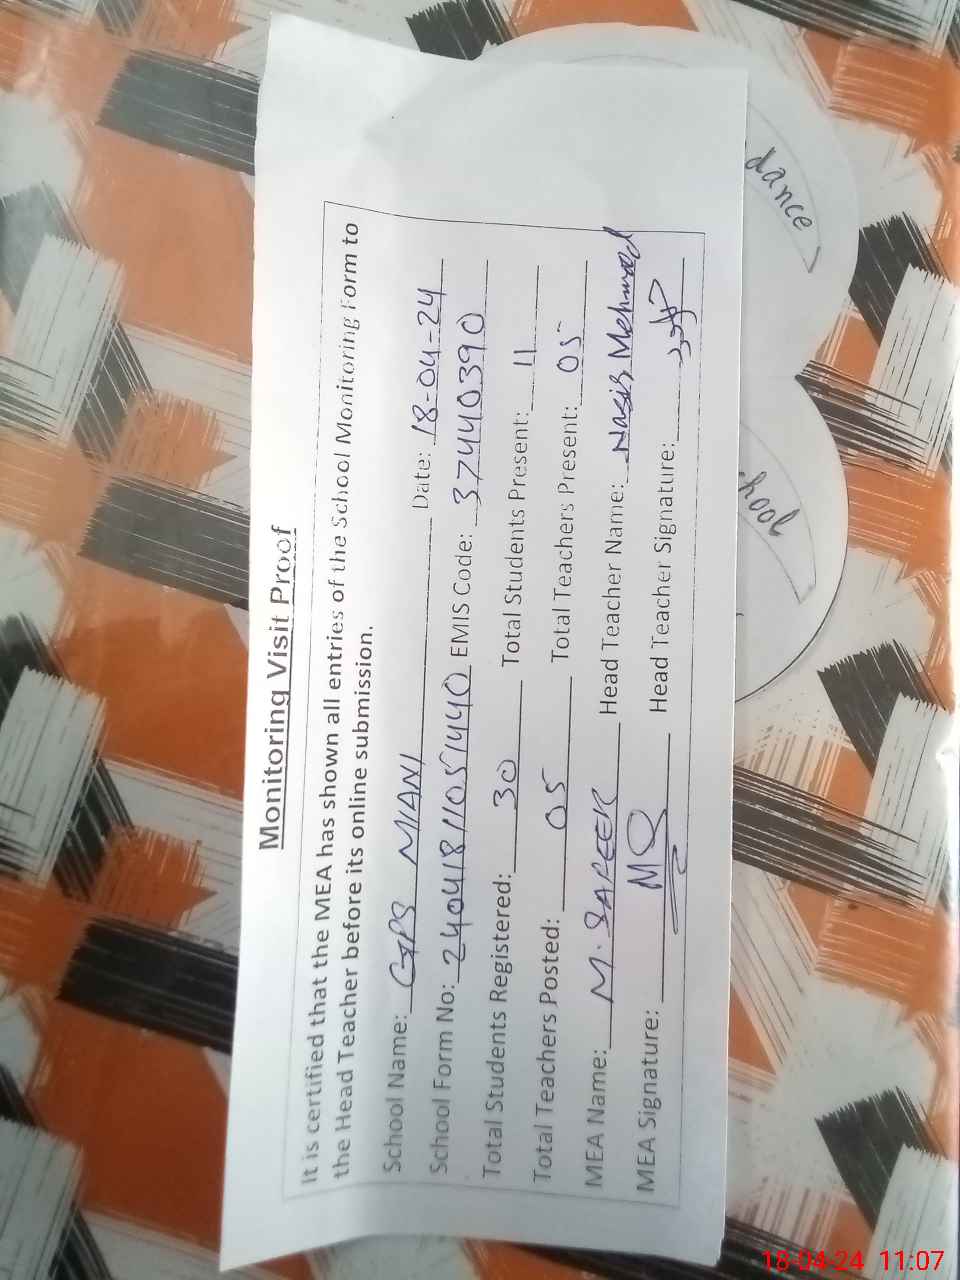 Monitoring Visit Proof
It is certified that the MEA has shown all entries of the School Monitoring Form to
the Head Teacher before its online submission.
School Name: GPS MIANI Date: 18-04-24
School Form No: 24041811051440 EMIS Code: 37440390
Total Students Registered: 30 Total Students Present: 11
Total Teachers Posted: 05 Total Teachers Present: 05
MEA Name: M. SAFEER Head Teacher Name: Nasir Mehmood
MEA Signature: MS Head Teacher Signature:
dance
hool
18-04-24 11:07